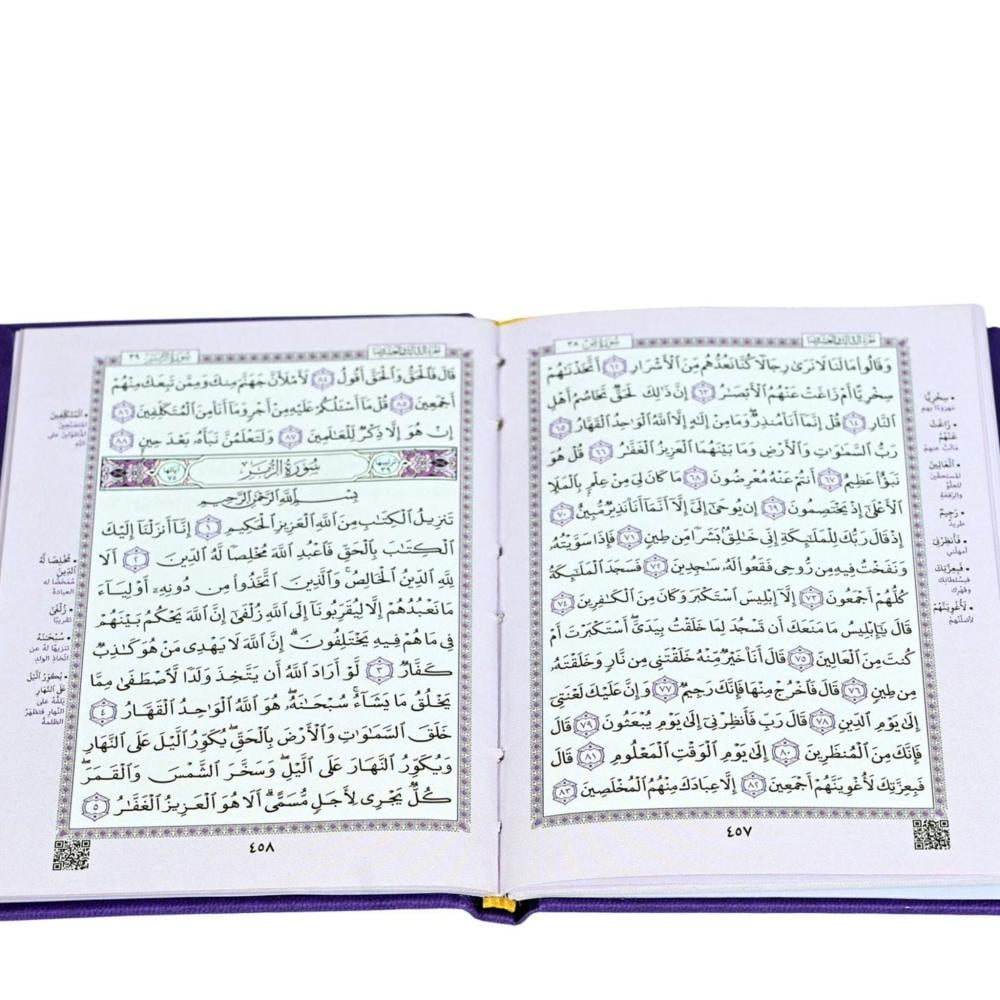 سورة ص ٣٨
الجزء الثالث والعشرون
وَقَالُوا۟ مَا لَنَا لَا نَرَىٰ رِجَالًا كُنَّا نَعُدُّهُم مِّنَ ٱلْأَشْرَارِ ٦٢ أَتَّخَذْنَٰهُمْ
سِخْرِيًّا أَمْ زَاغَتْ عَنْهُمُ ٱلْأَبْصَٰرُ ٦٣ إِنَّ ذَٰلِكَ لَحَقٌّ تَخَاصُمُ أَهْلِ
ٱلنَّارِ ٦٤ قُلْ إِنَّمَآ أَنَا۠ مُنذِرٌ وَمَا مِنْ إِلَٰهٍ إِلَّا ٱللَّهُ ٱلْوَٰحِدُ ٱلْقَهَّارُ ٦٥
رَبُّ ٱلسَّمَٰوَٰتِ وَٱلْأَرْضِ وَمَا بَيْنَهُمَا ٱلْعَزِيزُ ٱلْغَفَّٰرُ ٦٦ قُلْ هُوَ
نَبَؤٌا۟ عَظِيمٌ ٦٧ أَنتُمْ عَنْهُ مُعْرِضُونَ ٦٨ مَا كَانَ لِىَ مِنْ عِلْمٍۭ بِٱلْمَلَإِ
ٱلْأَعْلَىٰٓ إِذْ يَخْتَصِمُونَ ٦٩ إِن يُوحَىٰٓ إِلَىَّ إِلَّآ أَنَّمَآ أَنَا۠ نَذِيرٌ مُّبِينٌ ٧٠
إِذْ قَالَ رَبُّكَ لِلْمَلَٰٓئِكَةِ إِنِّى خَٰلِقٌۢ بَشَرًا مِّن طِينٍ ٧١ فَإِذَا سَوَّيْتُهُۥ
وَنَفَخْتُ فِيهِ مِن رُّوحِى فَقَعُوا۟ لَهُۥ سَٰجِدِينَ ٧٢ فَسَجَدَ ٱلْمَلَٰٓئِكَةُ
كُلُّهُمْ أَجْمَعُونَ ٧٣ إِلَّآ إِبْلِيسَ ٱسْتَكْبَرَ وَكَانَ مِنَ ٱلْكَٰفِرِينَ ٧٤
قَالَ يَٰٓإِبْلِيسُ مَا مَنَعَكَ أَن تَسْجُدَ لِمَا خَلَقْتُ بِيَدَىَّ أَسْتَكْبَرْتَ أَمْ
كُنتَ مِنَ ٱلْعَالِينَ ٧٥ قَالَ أَنَا۠ خَيْرٌ مِّنْهُ خَلَقْتَنِى مِن نَّارٍ وَخَلَقْتَهُۥ
مِن طِينٍ ٧٦ قَالَ فَٱخْرُجْ مِنْهَا فَإِنَّكَ رَجِيمٌ ٧٧ وَإِنَّ عَلَيْكَ لَعْنَتِىٓ
إِلَىٰ يَوْمِ ٱلدِّينِ ٧٨ قَالَ رَبِّ فَأَنظِرْنِىٓ إِلَىٰ يَوْمِ يُبْعَثُونَ ٧٩ قَالَ
فَإِنَّكَ مِنَ ٱلْمُنظَرِينَ ٨٠ إِلَىٰ يَوْمِ ٱلْوَقْتِ ٱلْمَعْلُومِ ٨١ قَالَ
فَبِعِزَّتِكَ لَأُغْوِيَنَّهُمْ أَجْمَعِينَ ٨٢ إِلَّا عِبَادَكَ مِنْهُمُ ٱلْمُخْلَصِينَ ٨٣
٤٥٧
• سِخْرِيًّا
مهزوءًا بهم
• زَاغَتْ
عَنْهُمُ
مالت عنهم
• ٱلْعَالِينَ
المستحقين
للعلو
والرفعة
• رَجِيمٌ
طريد
• فَأَنظِرْنِى
أمهلني
• فَبِعِزَّتِكَ
فبسلطانك
وقهرك
• لَأُغْوِيَنَّهُمْ
لأضلنّهم
الجزء الثالث والعشرون
سورة الزمر ٣٩
قَالَ فَٱلْحَقُّ وَٱلْحَقَّ أَقُولُ ٨٤ لَأَمْلَأَنَّ جَهَنَّمَ مِنكَ وَمِمَّن تَبِعَكَ مِنْهُمْ
أَجْمَعِينَ ٨٥ قُلْ مَآ أَسْـَٔلُكُمْ عَلَيْهِ مِنْ أَجْرٍ وَمَآ أَنَا۠ مِنَ ٱلْمُتَكَلِّفِينَ ٨٦
إِنْ هُوَ إِلَّا ذِكْرٌ لِّلْعَٰلَمِينَ ٨٧ وَلَتَعْلَمُنَّ نَبَأَهُۥ بَعْدَ حِينٍۭ ٨٨
ترتيبها ٣٩ سُورَةُ الزُّمَرِ آياتها ٧٥
بِسْمِ ٱللَّهِ ٱلرَّحْمَٰنِ ٱلرَّحِيمِ
تَنزِيلُ ٱلْكِتَٰبِ مِنَ ٱللَّهِ ٱلْعَزِيزِ ٱلْحَكِيمِ ١ إِنَّآ أَنزَلْنَآ إِلَيْكَ
ٱلْكِتَٰبَ بِٱلْحَقِّ فَٱعْبُدِ ٱللَّهَ مُخْلِصًا لَّهُ ٱلدِّينَ ٢ أَلَا
لِلَّهِ ٱلدِّينُ ٱلْخَالِصُ وَٱلَّذِينَ ٱتَّخَذُوا۟ مِن دُونِهِۦٓ أَوْلِيَآءَ
مَا نَعْبُدُهُمْ إِلَّا لِيُقَرِّبُونَآ إِلَى ٱللَّهِ زُلْفَىٰٓ إِنَّ ٱللَّهَ يَحْكُمُ بَيْنَهُمْ
فِى مَا هُمْ فِيهِ يَخْتَلِفُونَ إِنَّ ٱللَّهَ لَا يَهْدِى مَنْ هُوَ كَٰذِبٌ
كَفَّارٌ ٣ لَّوْ أَرَادَ ٱللَّهُ أَن يَتَّخِذَ وَلَدًا لَّٱصْطَفَىٰ مِمَّا
يَخْلُقُ مَا يَشَآءُ سُبْحَٰنَهُۥ هُوَ ٱللَّهُ ٱلْوَٰحِدُ ٱلْقَهَّارُ ٤
خَلَقَ ٱلسَّمَٰوَٰتِ وَٱلْأَرْضَ بِٱلْحَقِّ يُكَوِّرُ ٱلَّيْلَ عَلَى ٱلنَّهَارِ
وَيُكَوِّرُ ٱلنَّهَارَ عَلَى ٱلَّيْلِ وَسَخَّرَ ٱلشَّمْسَ وَٱلْقَمَرَ
كُلٌّ يَجْرِى لِأَجَلٍ مُّسَمًّى أَلَا هُوَ ٱلْعَزِيزُ ٱلْغَفَّٰرُ ٥
٤٥٨
• ٱلْمُتَكَلِّفِينَ
المتصنعين
المتقوّلين على
الله
• مُخْلِصًا لَّهُ
ٱلدِّينَ
مُمَحِّضًا له
العبادة
• زُلْفَىٰ
تقريبًا
• سُبْحَٰنَهُ
تنزيهًا له عن
اتخاذ الولد
• يُكَوِّرُ ٱلَّيْلَ
عَلَى ٱلنَّهَارِ
يلفّه على
النهار فتظهر
الظلمة